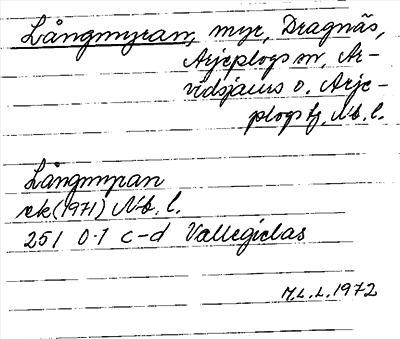 Långmyran, myr, Dragnäs,
Arjeplogs sn, Ar-
vidsjaurs o. Arje-
plogs tj, Nb. l.
Långmyran
ek (1971) Nb. l.
25 I 0-1 c-d Vallegielas
M.L.L. 1972